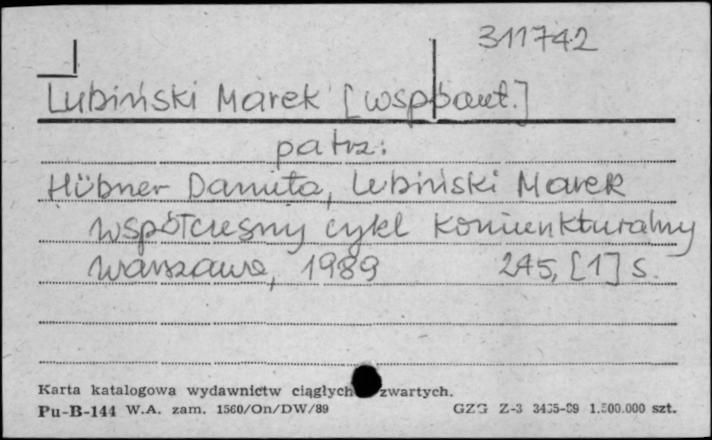 311742
Lubiński Marek [współaut.]
patrz:
Hübner Danuta, Lubiński Marek
Współczesny cykl koniunkturalny
Warszawa, 1989 245, [1] s.
Karta katalogowa wydawnictw ciągłych zwartych.
Pu-B-144 W.A. zam. 1560/On/DW/89 GZG Z-3 3435-89 1.500.000 szt.